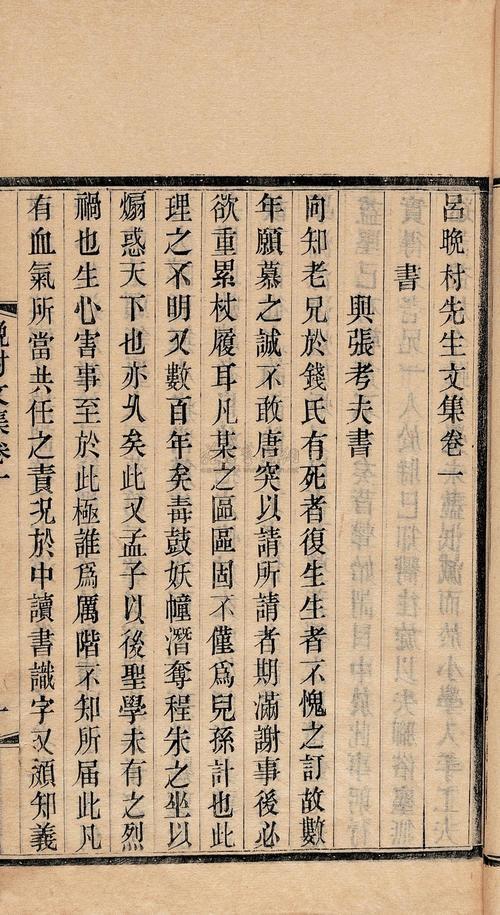 呂晚村先生文集卷一
書
與張考夫書
向知老兄於錢氏有死者復生生者不愧之訂故數
年願慕之誠不敢唐突以請所請者期滿謝事後必
欲重累杖履耳凡某之區區固不僅爲兒孫計也此
理之不明又數百年矣毒鼓妖幢潛奪程朱之坐以
煽惑天下也亦久矣此又孟子以後聖學未有之烈
禍也生心害事至於此極誰爲厲階不知所届此凡
有血氣所當共任之責況於中讀書識字又頗知義
晚村文集卷一
一